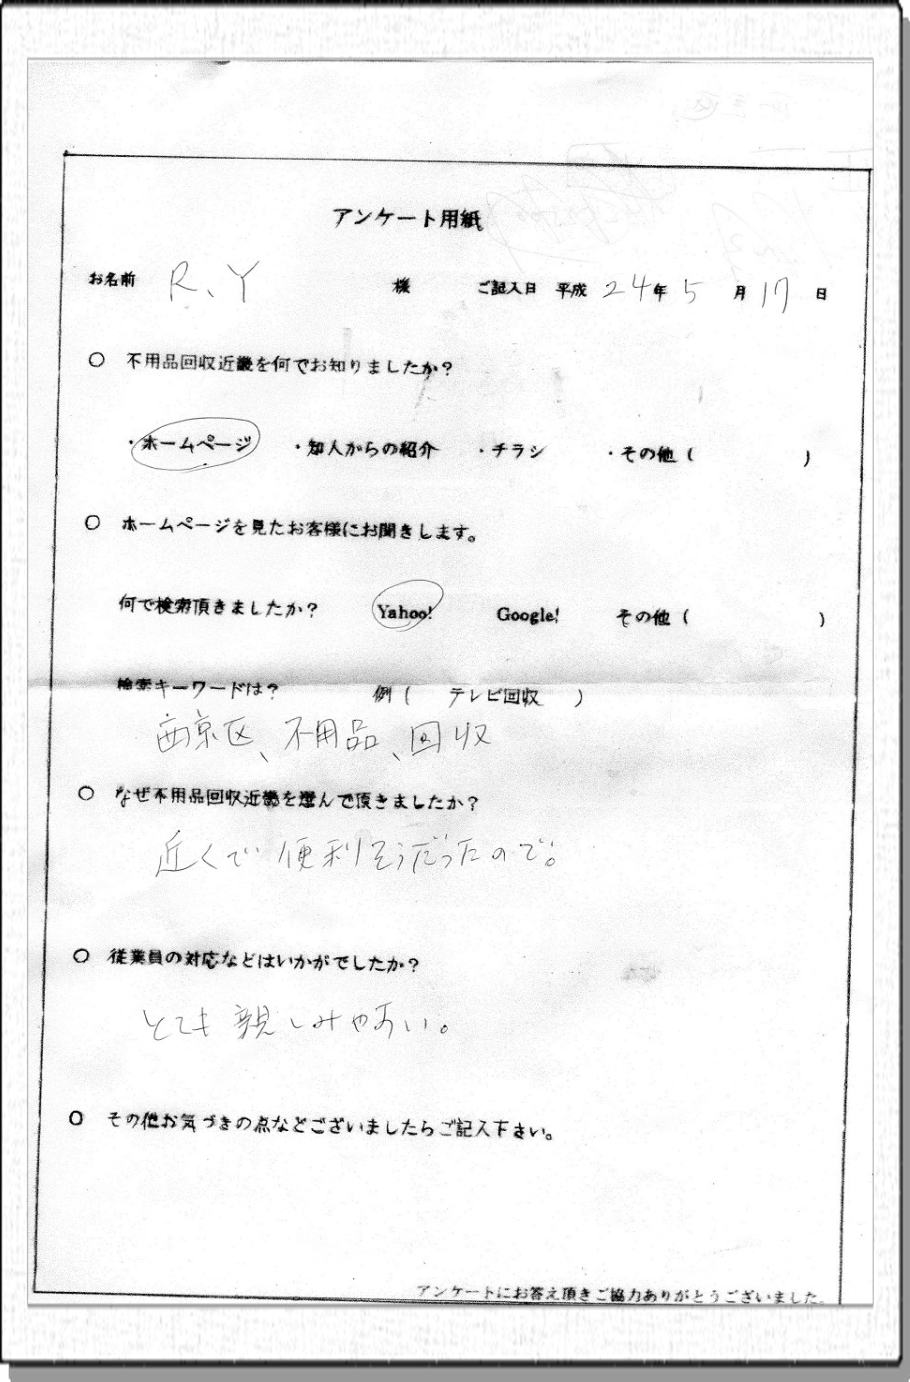 アンケート用紙
お名前 R、Y 様 ご記入日 平成 24年 5 月 17 日
○ 不用品回収近畿を何でお知りましたか?
・ホームページ ・知人からの紹介 ・チラシ ・その他 ( )
○ ホームページを見たお客様にお聞きします。
何で検索頂きましたか? Yahoo! Google! その他 ( )
検索キーワードは? 例 ( テレビ回収 )
西京区、不用品、回収
○ なぜ不用品回収近畿を選んで頂きましたか?
近くで便利そうだったので。
○ 従業員の対応などはいかがでしたか?
とても親しみやすい。
○ その他お気づきの点などございましたらご記入下さい。
アンケートにお答え頂きご協力ありがとうございました。